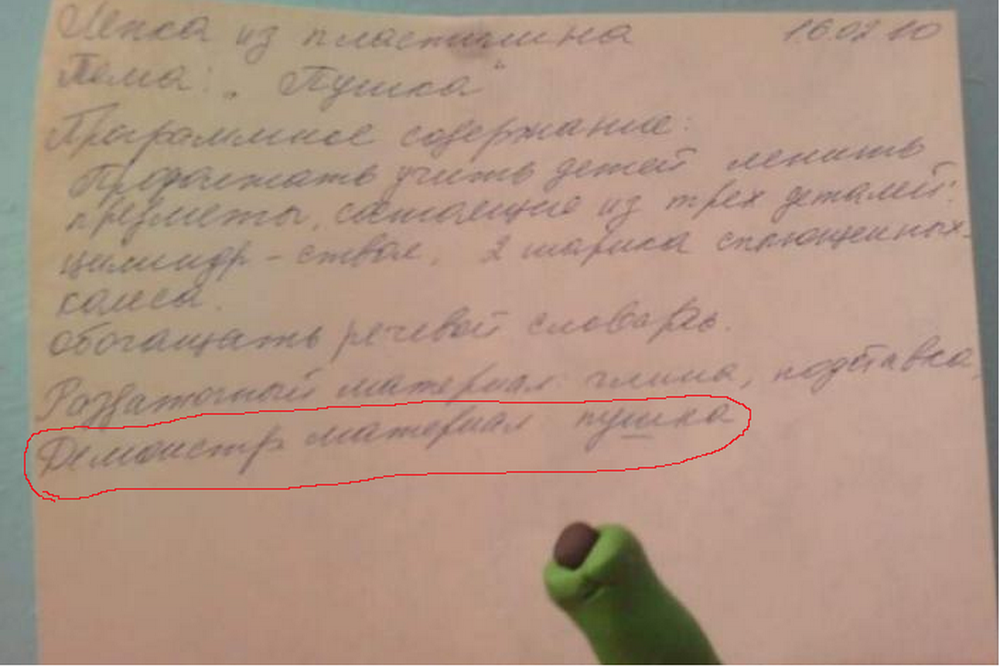 Лепка из пластилина 16.02 10
Тема: „Пушка“
Программное содержание:
Продолжать учить детей лепить
предметы, состоящие из трех деталей:
цилиндр - ствол, 2 шарика сплющенных-
колеса.
обогащать речевой словарь.
Раздаточный материал: глина, подставка,
Демонстр материал пушка